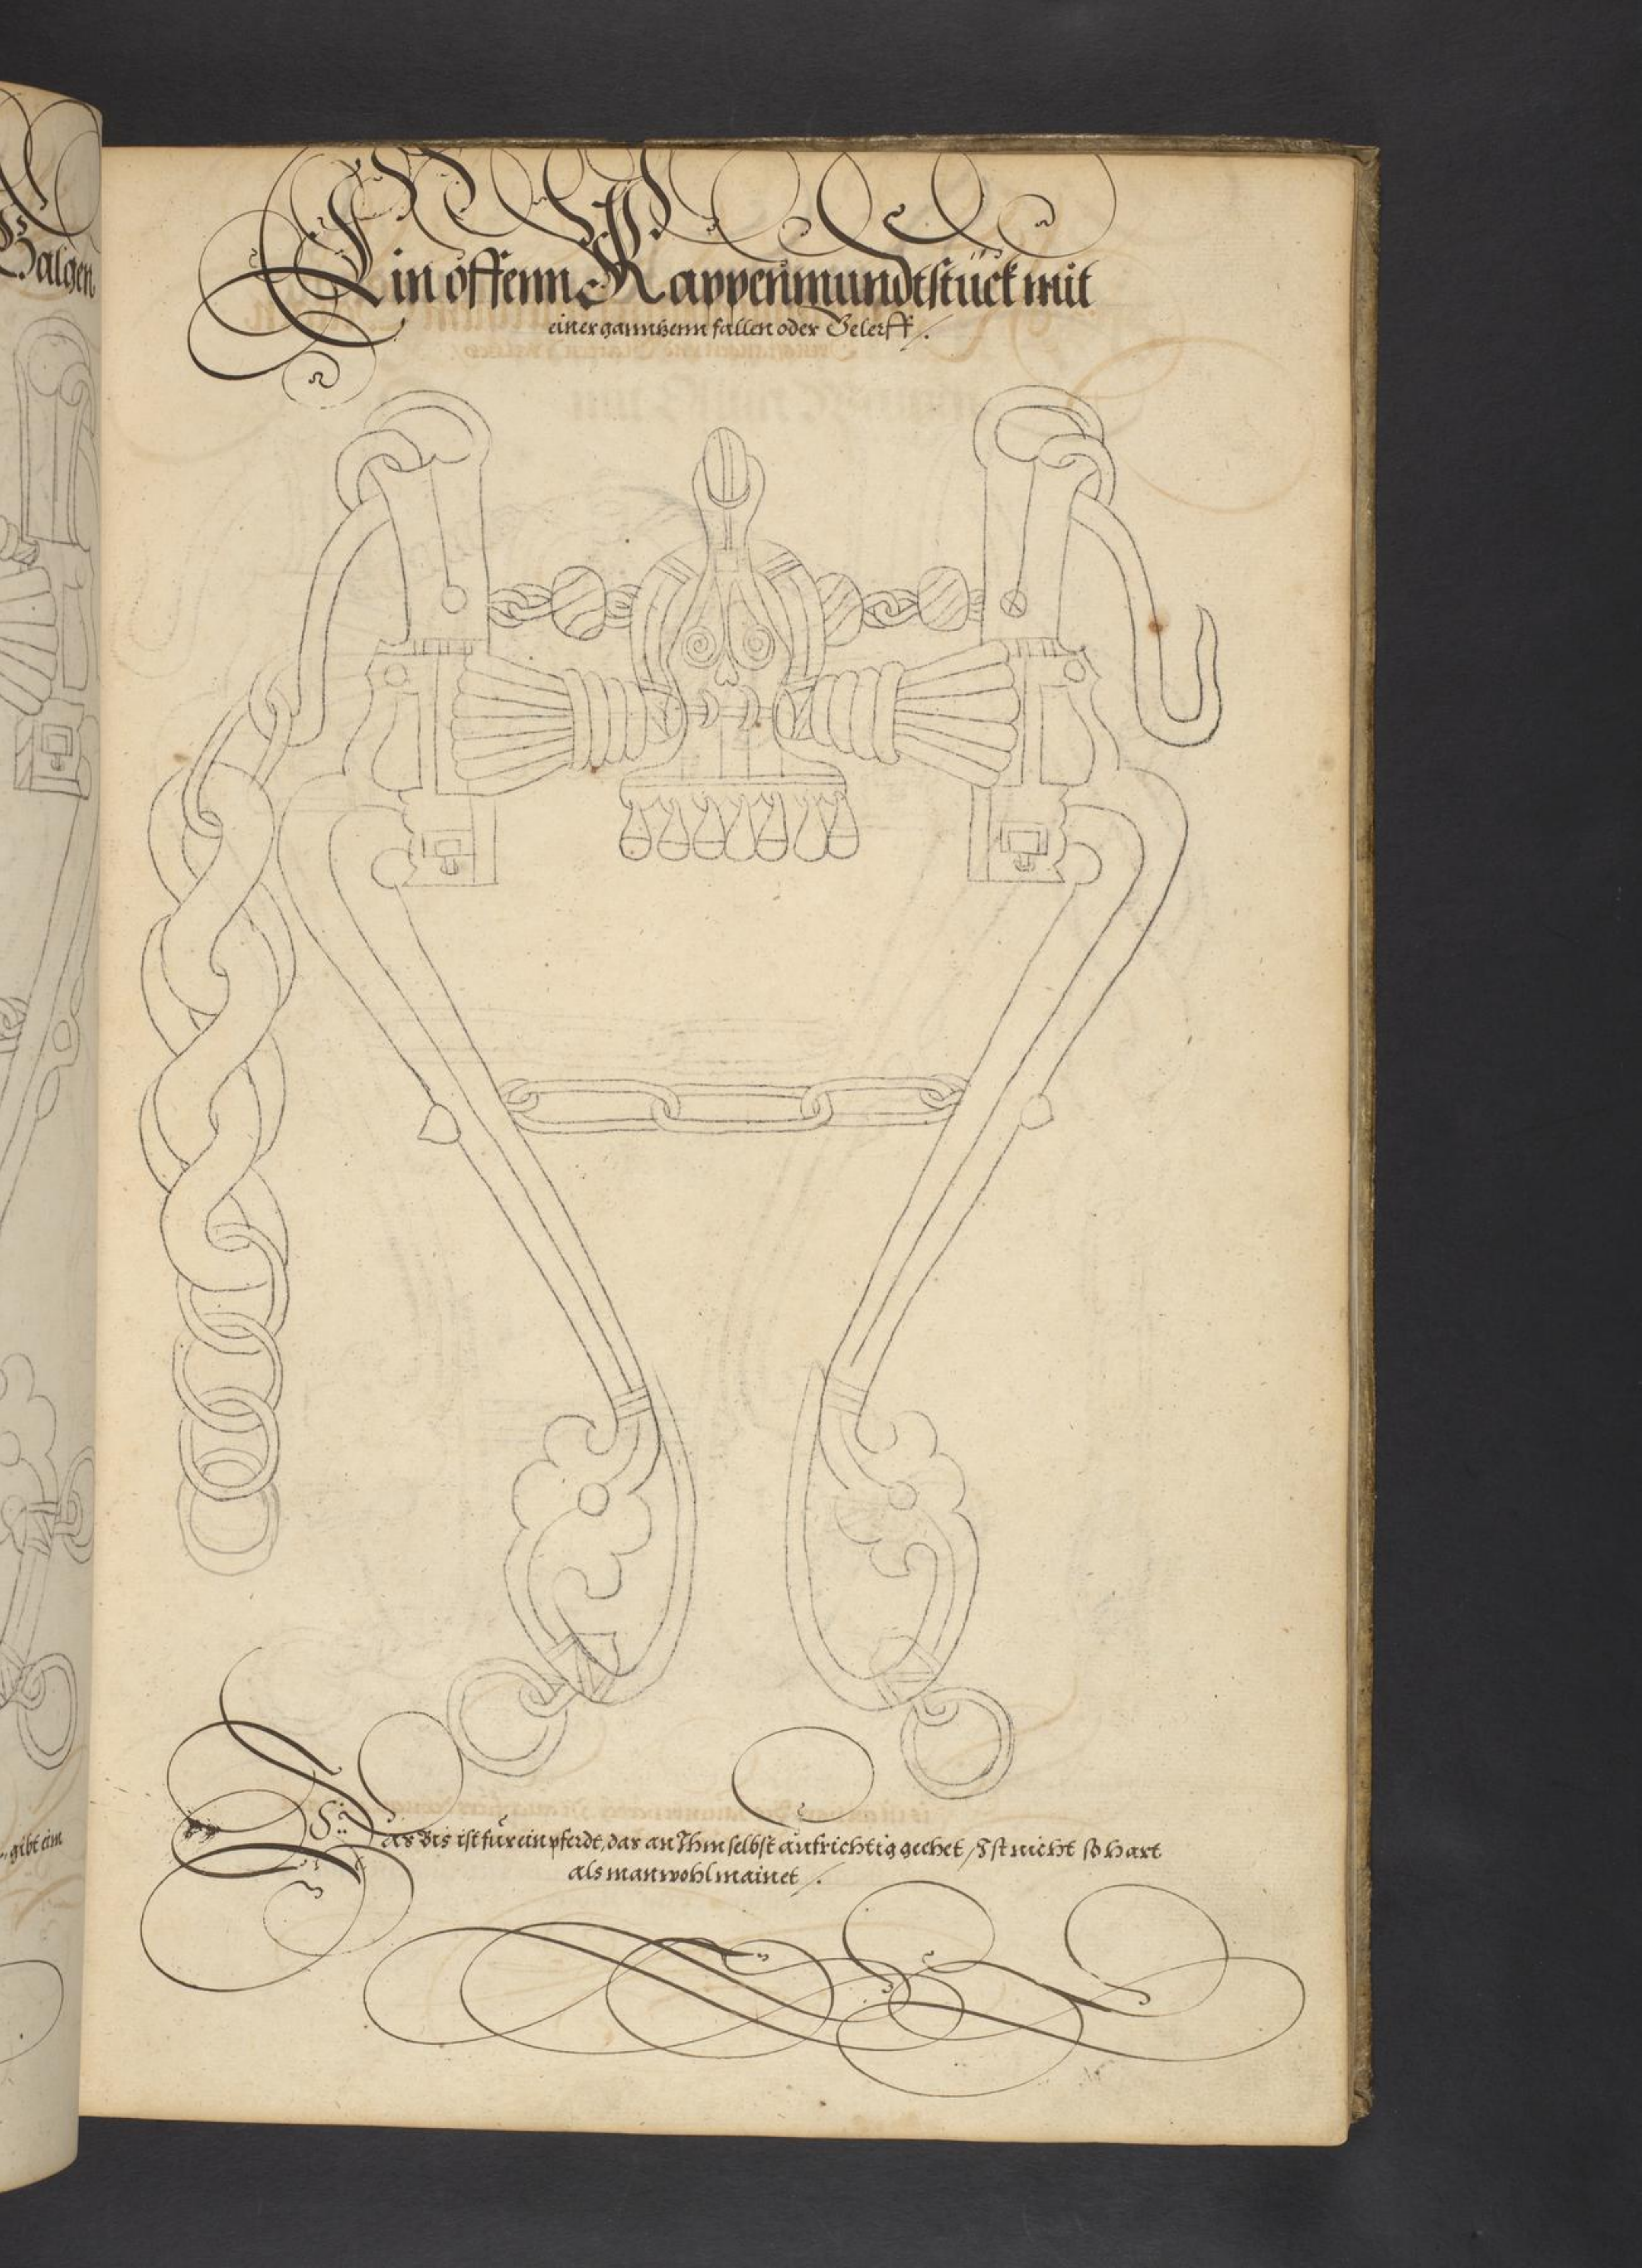 Balgen
Ein offenn Kappenmundtstück mit
einer ganntzenn fallen oder Gelerff /.
gibt eim
Das Bis ist für ein pferdt, das an Ihm selbst aufrichtig geehet / Ist nicht so hart
als man wohl mainet /.